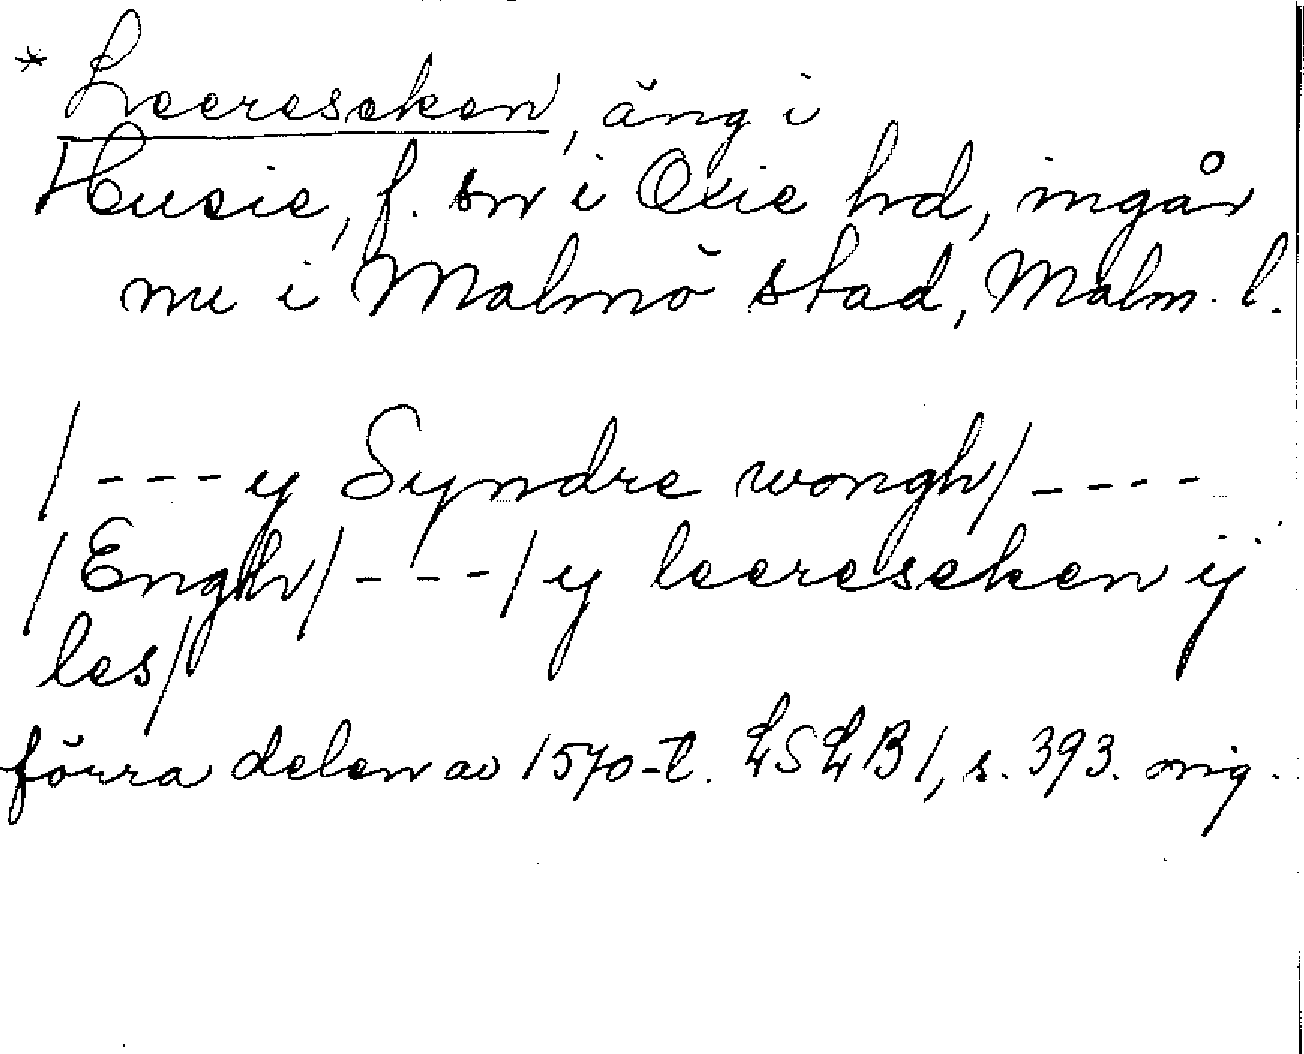 * Leereseken, äng i
Husie, f. sn i Oxie hd, ingår
nu i Malmö stad, Malm. l.
/---y Syndre wongh/----
/Engh/---/y leereseken ij
les/
förra delen av 1570-t. LSLB 1, s. 393. orig.